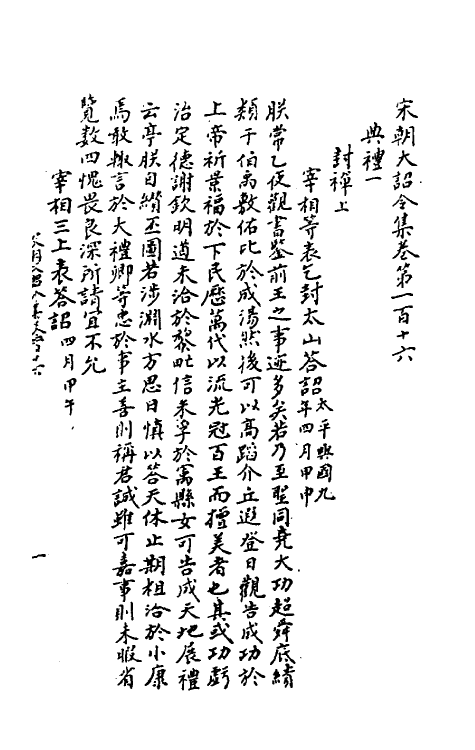 宋朝大詔令集卷第一百十六
典禮一
封禪上
宰相等表乞封太山答詔太平興國九年四月甲申
朕常乙夜觀書鑒前王之事迹多矣若乃至聖同堯大功超舜底績
類于伯禹敷佑比於成湯然後可以高蹈介丘遐登日觀告成功於
上帝祈景福於下民歷萬代以流光冠百王而擅美者也其或功虧
治定德謝欽明道未洽於黎甿信未孚於寓縣安可告成天地展禮
云亭朕自纘丕圖若涉淵水方思日慎以答天休止期粗洽於小康
焉敢輙言於大禮卿等忠於事主善則稱君誠雖可嘉事則未暇省
覽數四愧畏良深所請宜不允
宰相三上表答詔四月甲午
一